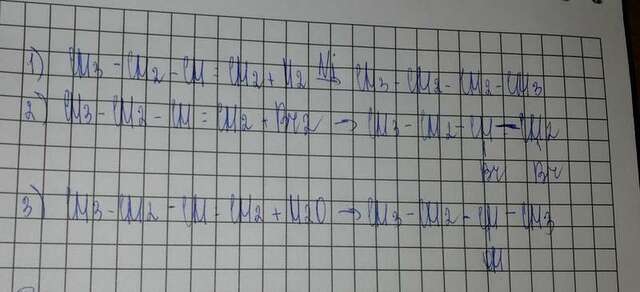 1) CH3 - CH2 - CH = CH2 + H2 Ni→ CH3 - CH2 - CH2 - CH3
2) CH3 - CH2 - CH = CH2 + Br2 → CH3 - CH2 - CH - CH2
Br Br
3) CH3 - CH2 - CH - CH2 + H2O → CH3 - CH2 - CH - CH3